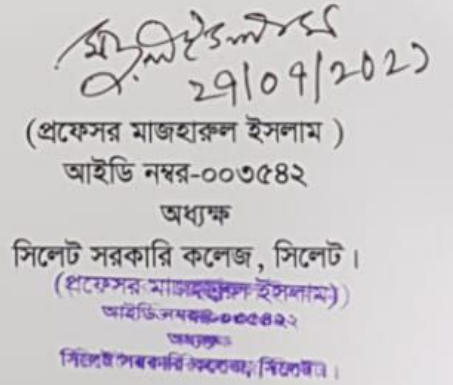 ২৭/০৭/২০২১
(প্রফেসর মাজহারুল ইসলাম )
আইডি নম্বর-০০৩৫৪২
অধ্যক্ষ
সিলেট সরকারি কলেজ, সিলেট।
(প্রফেসর মাজহারুল ইসলাম)
আইডি নম্বর-০০৩৫৪২
অধ্যক্ষ
সিলেট সরকারি কলেজ, সিলেট।